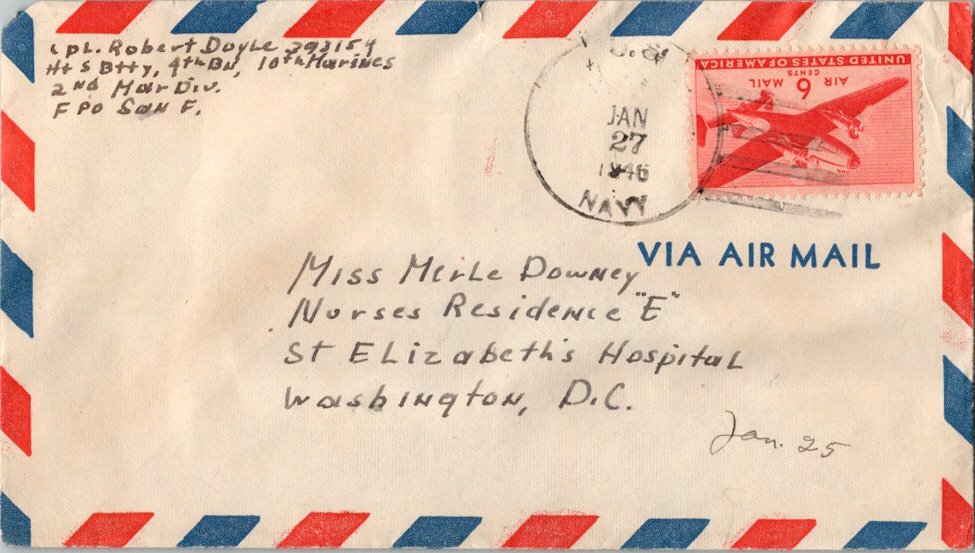 Cpl. Robert Doyle 393154
H+S Btty, 4th Bn, 10th Marines
2nd Mar Div.
F PO San F.
U.S.
JAN
27
1946
NAVY
UNITED STATES OF AMERICA
AIR 6 MAIL
CENTS
VIA AIR MAIL
Miss Merle Downey
Nurses Residence "E"
St Elizabeth's Hospital
Washington, D.C.
Jan. 25